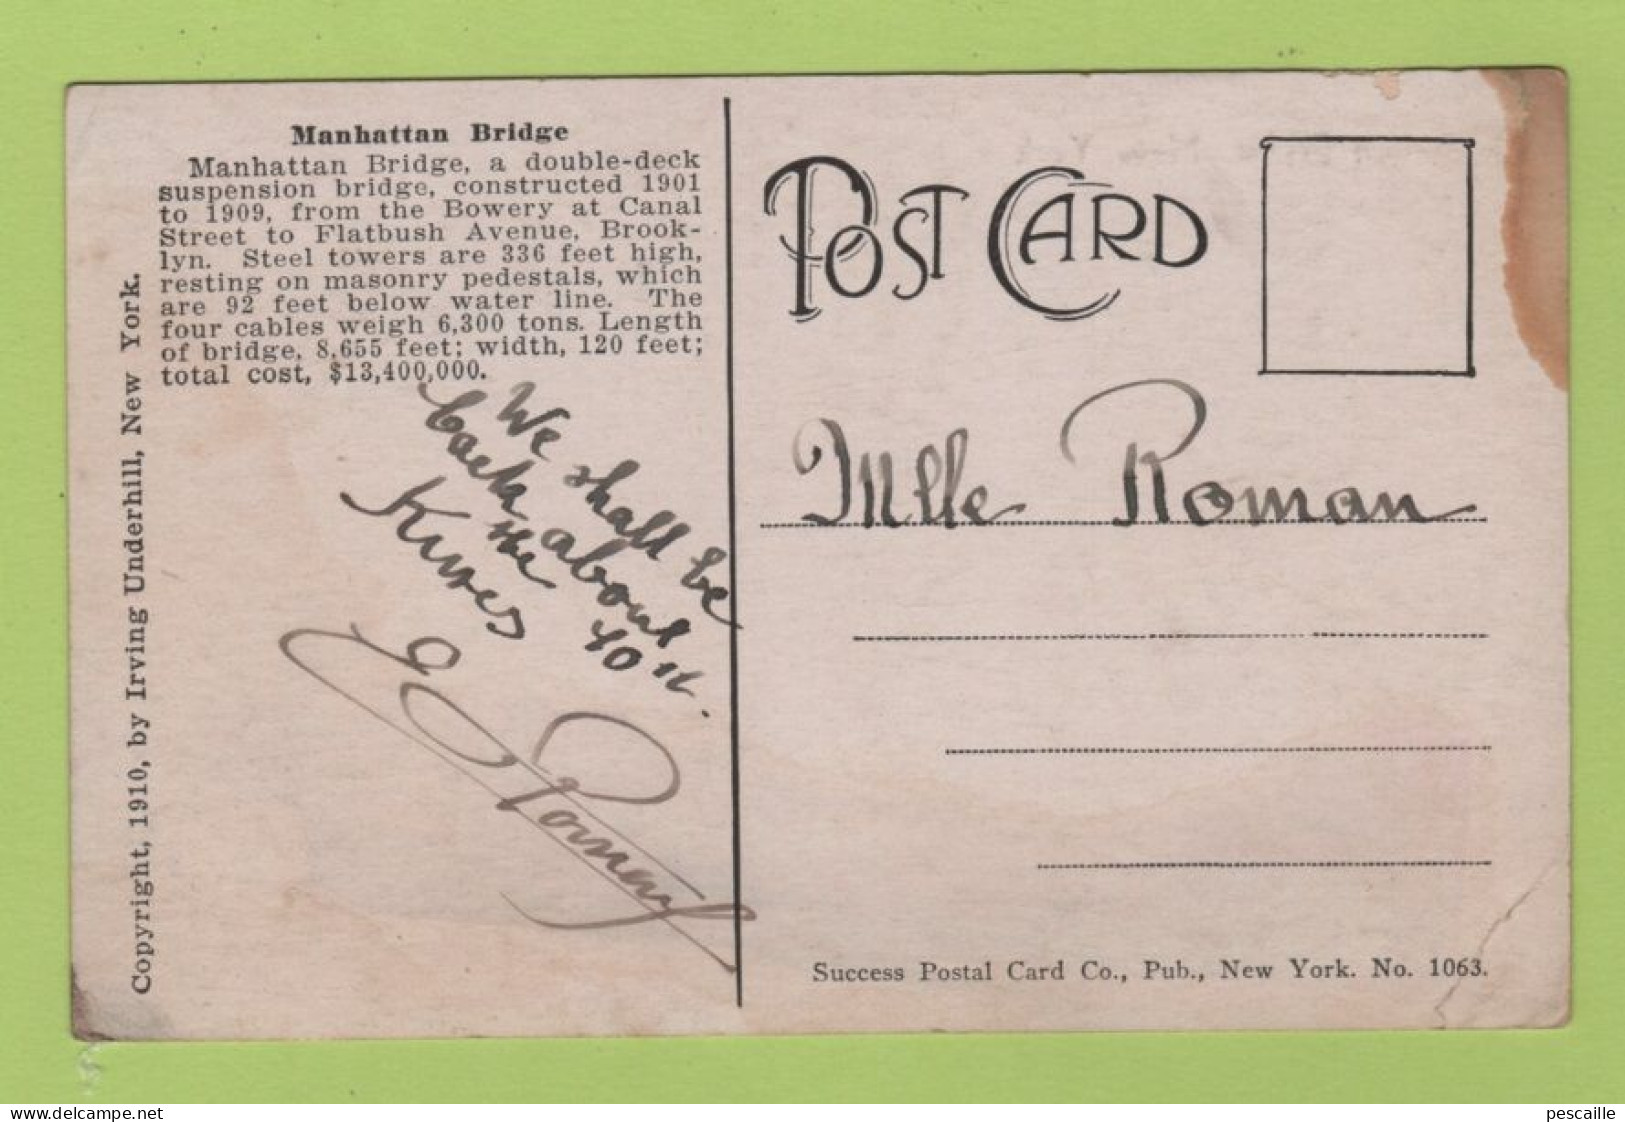 Manhattan Bridge
Manhattan Bridge, a double-deck
suspension bridge, constructed 1901
to 1909, from the Bowery at Canal
Street to Flatbush Avenue, Brook-
lyn. Steel towers are 336 feet high,
resting on masonry pedestals, which
are 92 feet below water line. The
four cables weigh 6,300 tons. Length
of bridge, 8,655 feet; width, 120 feet;
total cost, $13,400,000.
Copyright, 1910, by Irving Underhill, New York.
We shall be
back about
the 10th.
E
POST CARD
Mlle Roman
Success Postal Card Co., Pub., New York. No. 1063.
delcampe.net
pescaille